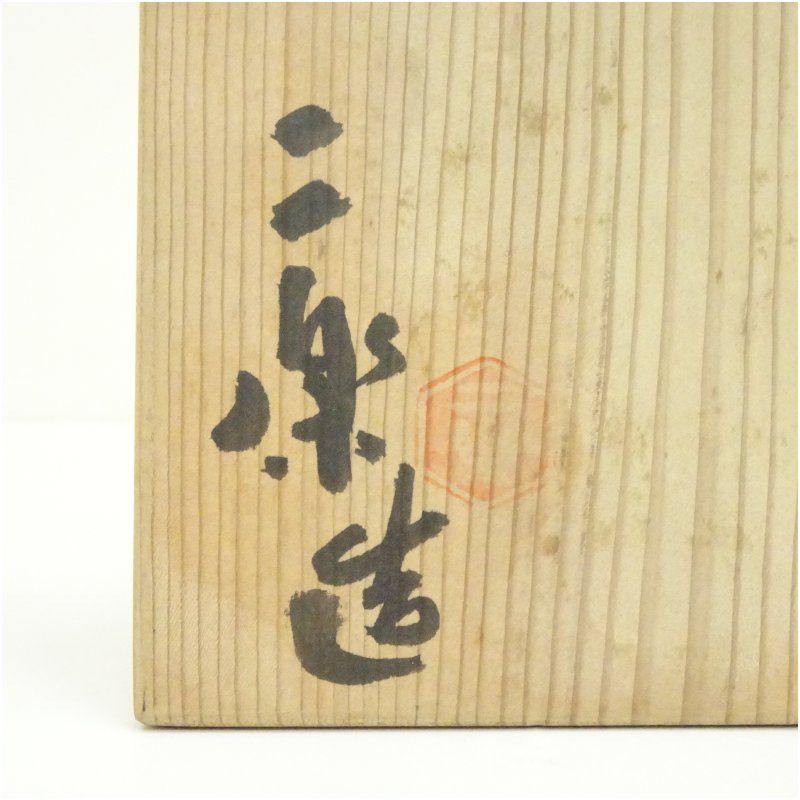 二楽造